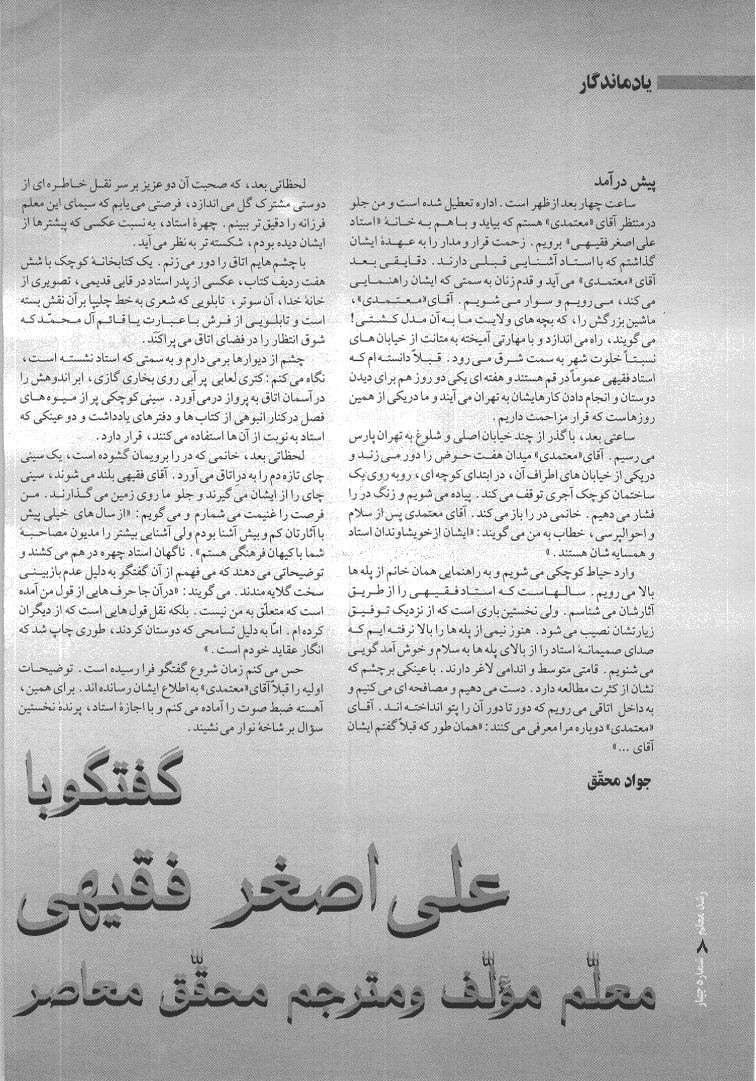 یادماندگار
پیش درآمد
ساعت چهار بعد از ظهر است. اداره تعطیل شده است و من جلو
در منتظر آقای «معتمدی» هستم که بیاید و با هم به خانهٔ «استاد
علی اصغر فقیهی» برویم. زحمت قرار و مدار را به عهدهٔ ایشان
گذاشتم که با استاد آشنایی قبلی دارند. دقایقی بعد
آقای «معتمدی» می آید و قدم زنان به سمتی که ایشان راهنمایی
می کند، می رویم و سوار می شویم. آقای «معتمدی»،
ماشین بزرگش را، که بچه های ولایت ما به آن مدل کشتی!
می گویند، راه می اندازد و با مهارتی آمیخته به متانت از خیابان های
نسبتاً خلوت شهر به سمت شرق می رود. قبلاً دانسته ام که
استاد فقیهی عموماً در قم هستند و هفته ای یکی دو روز هم برای دیدن
دوستان و انجام دادن کارهایشان به تهران می آیند و ما در یکی از همین
روزهاست که قرار مزاحمت داریم.
ساعتی بعد، با گذر از چند خیابان اصلی و شلوغ به تهران پارس
می رسیم. آقای «معتمدی» میدان هفت حوض را دور می زند و
در یکی از خیابان های اطراف آن، در ابتدای کوچه ای، روبه روی یک
ساختمان کوچک آجری توقف می کند. پیاده می شویم و زنگ در را
فشار می دهیم. خانمی در را باز می کند. آقای معتمدی پس از سلام
و احوالپرسی، خطاب به من می گویند: «ایشان از خویشاوندان استاد
و همسایه شان هستند.»
وارد حیاط کوچکی می شویم و به راهنمایی همان خانم از پله ها
بالا می رویم. سالهاست که استاد فقیهی را از طریق
آثارشان می شناسم. ولی نخستین باری است که از نزدیک توفیق
زیارتشان نصیب می شود. هنوز نیمی از پله ها را بالا نرفته ایم که
صدای صمیمانهٔ استاد را از بالای پله ها به سلام و خوش آمدگویی
می شنویم. قامتی متوسط و اندامی لاغر دارند. با عینکی بر چشم که
نشان از کثرت مطالعه دارد. دست می دهیم و مصافحه ای می کنیم و
به داخل اتاقی می رویم که دور تا دور آن را پتو انداخته اند. آقای
«معتمدی» دوباره مرا معرفی می کنند: «همان طور که قبلاً گفتم ایشان
آقای ...»
جواد محقّق
لحظاتی بعد، که صحبت آن دو عزیز بر سر نقل خاطره ای از
دوستی مشترک گل می اندازد، فرصتی می یابم که سیمای این معلم
فرزانه را دقیق تر ببینم. چهرهٔ استاد، به نسبت عکسی که پیشترها از
ایشان دیده بودم، شکسته تر به نظر می آید.
با چشم هایم اتاق را دور می زنم. یک کتابخانهٔ کوچک با شش
هفت ردیف کتاب، عکسی از پدر استاد در قابی قدیمی، تصویری از
خانهٔ خدا، آن سوتر، تابلویی که شعری به خط چلیپا بر آن نقش بسته
است و تابلویی از فرش با عبارت یا قائم آل محمّد که
شوق انتظار را در فضای اتاق می پراکند.
چشم از دیوارها برمی دارم و به سمتی که استاد نشسته است،
نگاه می کنم: کتری لعابی پر آبی روی بخاری گازی، ابر اندوهش را
در آسمان اتاق به پرواز درمی آورد. سینی کوچکی پر از میوه های
فصل در کنار انبوهی از کتاب ها و دفترهای یادداشت و دو عینکی که
استاد به نوبت از آن ها استفاده می کنند، قرار دارد.
لحظاتی بعد، خانمی که در را برویمان گشوده است، یک سینی
چای تازه دم را به در اتاق می آورد. آقای فقیهی بلند می شوند، سینی
چای را از ایشان می گیرند و جلو ما روی زمین می گذارند. من
فرصت را غنیمت می شمارم و می گویم: «از سال های خیلی پیش
با آثارتان کم و بیش آشنا بودم ولی آشنایی بیشتر را مدیون مصاحبهٔ
شما با کیهان فرهنگی هستم». ناگهان استاد چهره در هم می کشند و
توضیحاتی می دهند که می فهمم از آن گفتگو به دلیل عدم بازبینی
سخت گلایه مندند. می گویند: «در آن جا حرف هایی از قول من آمده
است که متعلّق به من نیست. بلکه نقل قول هایی است که از دیگران
کرده ام. امّا به دلیل تسامحی که دوستان کردند، طوری چاپ شد که
انگار عقاید خودم است.»
حس می کنم زمان شروع گفتگو فرا رسیده است. توضیحات
اولیه را قبلاً آقای «معتمدی» به اطلاع ایشان رسانده اند. برای همین،
آهسته ضبط صوت را آماده می کنم و با اجازهٔ استاد، پرندهٔ نخستین
سؤال بر شاخهٔ نوار می نشیند.
گفتگو با
علی اصغر فقیهی
معلّم مؤلّف و مترجم محقّق معاصر
رشد معلم > شماره چهار